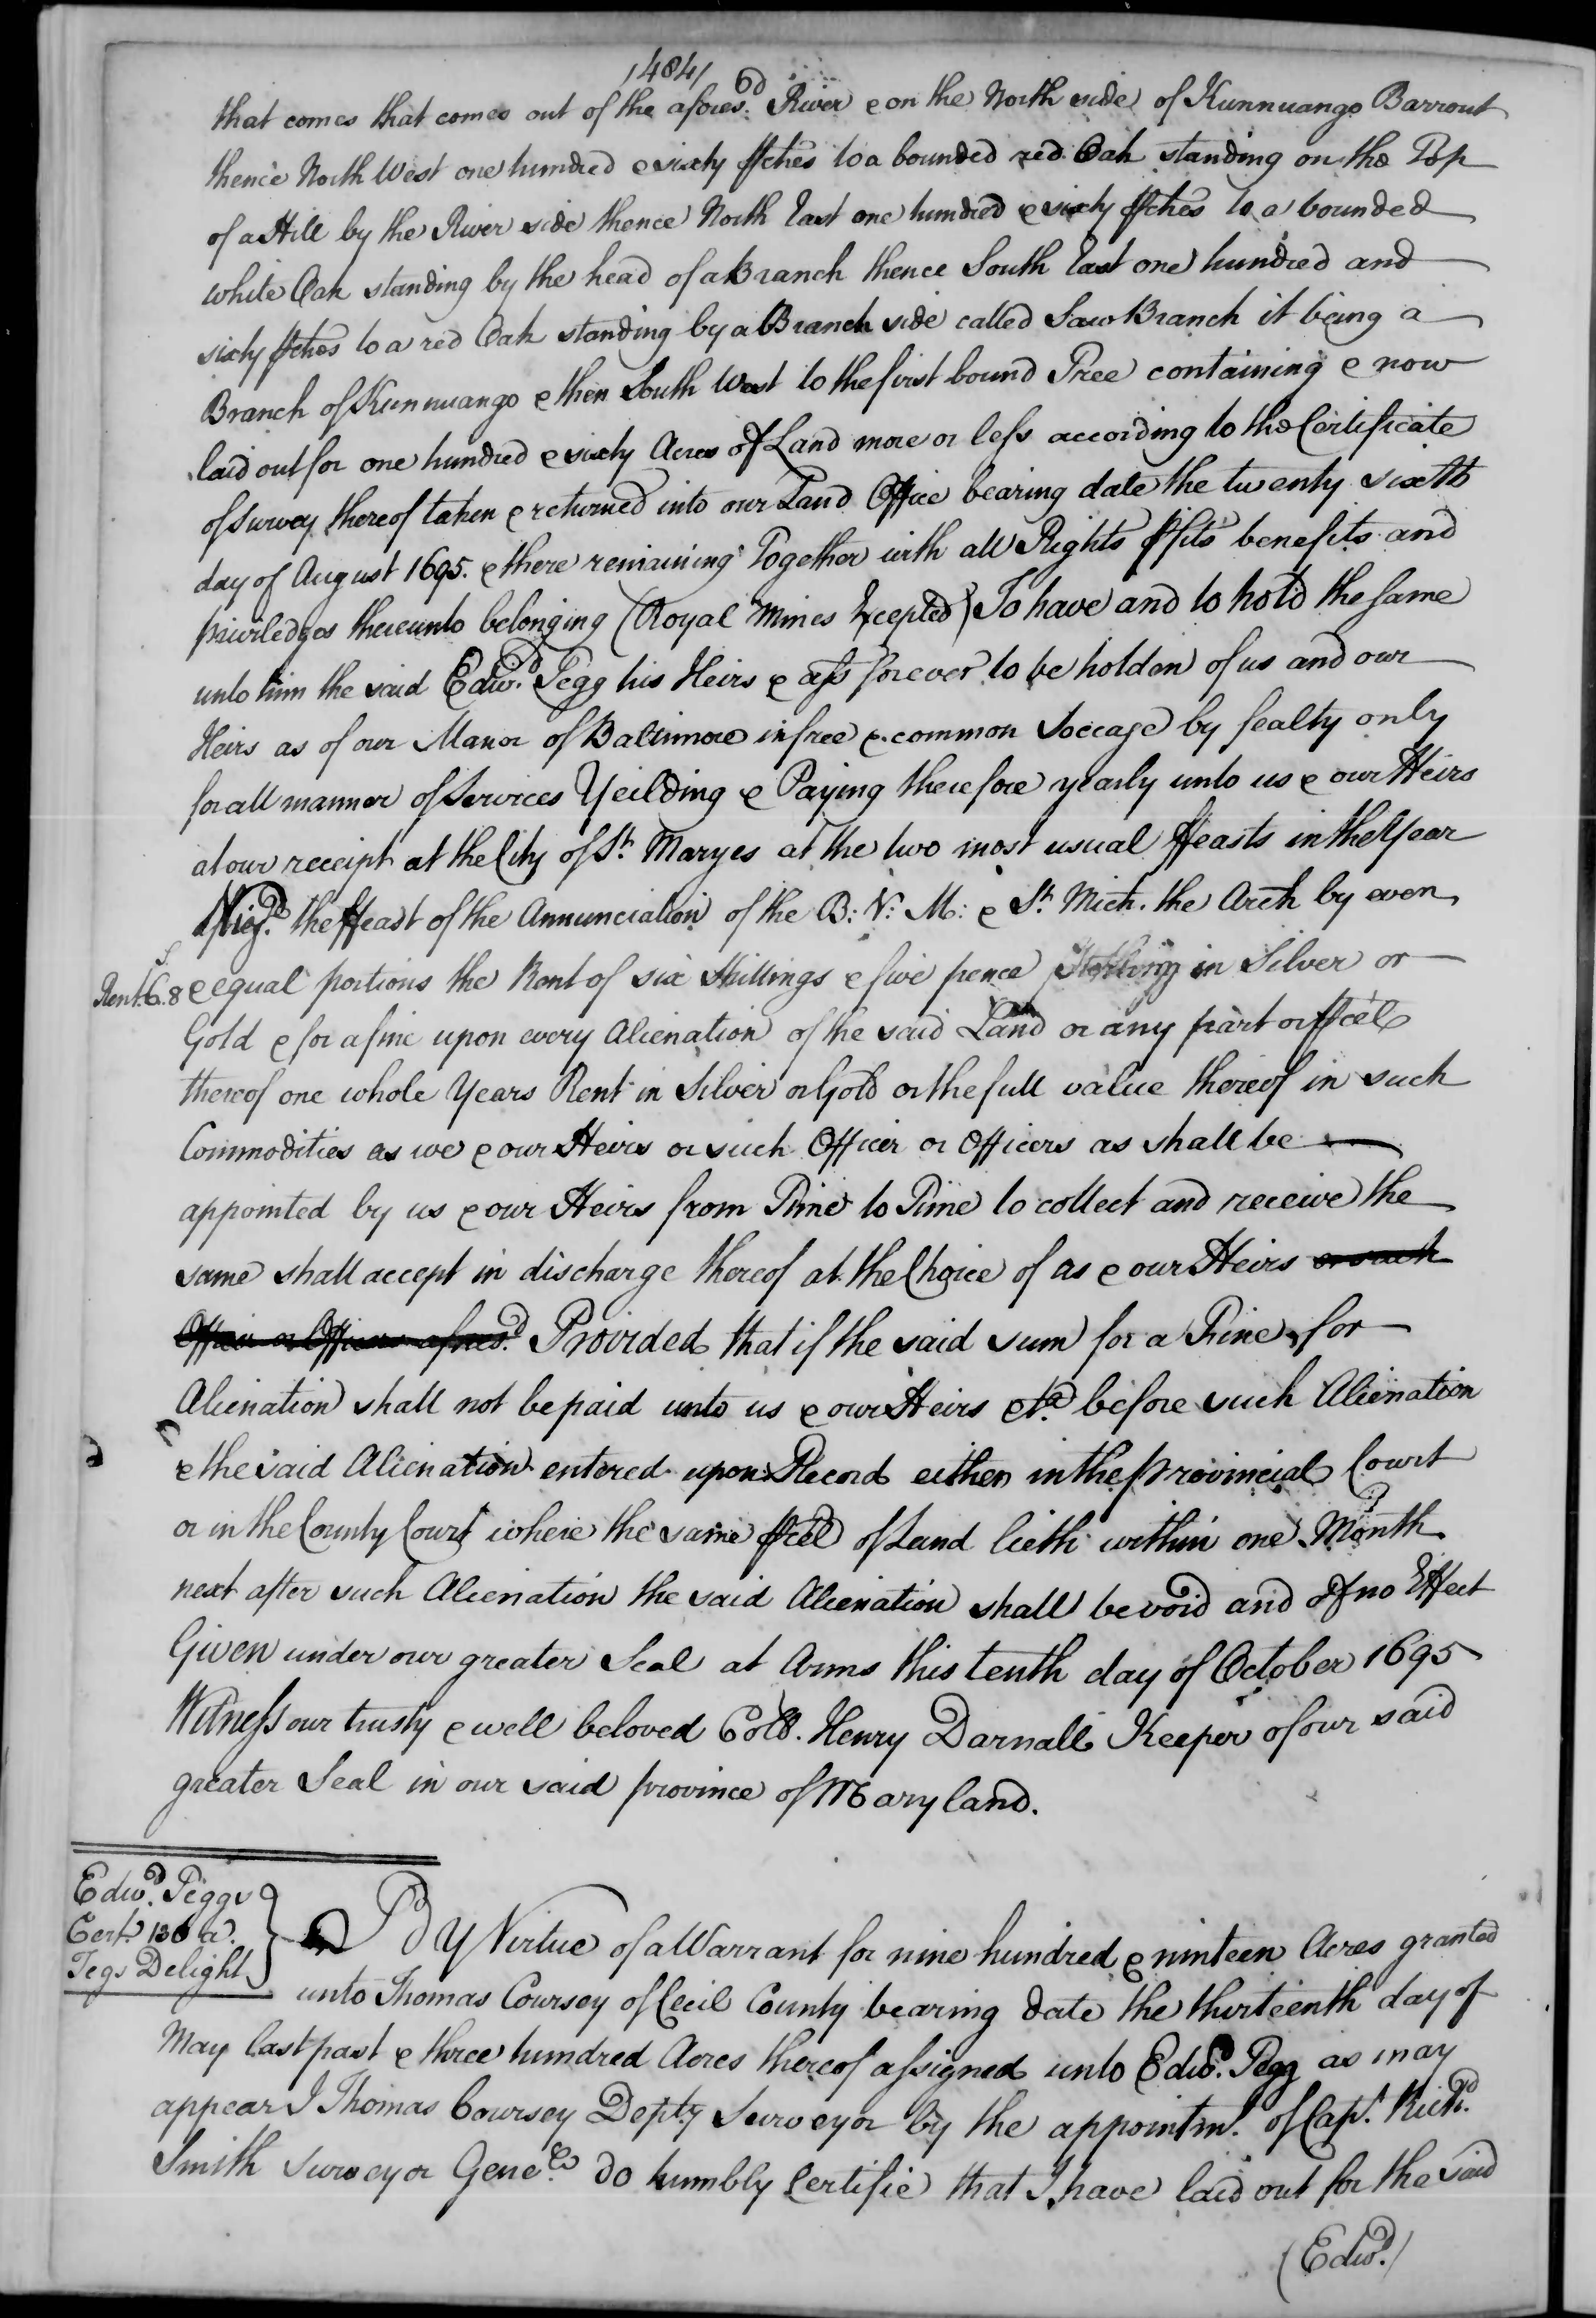 /484/
that comes that comes out of the afores:d River & on the North side of Kunnuango Barrout
thence North West one hundred & sixty pches to a bounded red Oak standing on the Top
of a Hill by the River side thence North East one hundred & sixty pches to a bounded
white Oak standing by the head of a Branch thence South East one hundred and
sixty pches to a red Oak standing by a Branch side called Saw Branch it being a
Branch of Kunnuango & then South West to the first bound Tree containing & now
laid out for one hundred & sixty Acres of Land more or less according to the Certificate
of survey thereof taken & returned into our Land Office bearing date the twenty sixth
day of August 1695. & there remaining Together with all Rights pfits benefits and
priviledges thereunto belonging (Royal Mines Excepted) To have and to hold the same
unto him the said Edw.d Pegg his Heirs & ass forever to be holden of us and our
Heirs as of our Manor of Baltimore in free & common Soccage by fealty only
for all manner of Services Yeilding & Paying therefore yearly unto us & our Heirs
at our receipt at the City of St. Maryes at the two most usual ffeasts in the Year
the ffeast of the Annunciation of the B: V: M: & St. Mich. the Arch by even
Rent. 6.8
& equal portions the Rent of six shillings & five pence Sterling in Silver or
Gold & for a fine upon every Alienation of the said Land or any part or pcel
thereof one whole Years Rent in Silver or Gold or the full value thereof in such
Commodities as we & our Heirs or such Officer or Officers as shall be
appointed by us & our Heirs from Time to Time to collect and receive the
same shall accept in discharge thereof at the Choice of as & our Heirs or such
Officer or Officers afores.d Provided that if the said sum for a Fine for
Alienation shall not be paid unto us & our Heirs &ta. before such Alienation
& the said Alienation entered upon Record either in the provincial Court
or in the County Court where the same pcel of Land lieth within one Month
next after such Alienation the said Alienation shall be void and of no Effect
Given under our greater Seal at Arms this tenth day of October 1695
Witness our trusty & well beloved Coll. Henry Darnall Keeper of our said
greater Seal in our said province of Maryland.
Edw.d Peggs
Cert. 136 a.
Tegs Delight
By Virtue of a Warrant for nine hundred & ninteen Acres granted
unto Thomas Coursey of Cecil County bearing date the thirteenth day of
May last past & three hundred Acres thereof assigned unto Edw.d Pegg as may
appear I Thomas Coursey Dep.ty Surveyor by the appointm.t of Cap.t Rich.d
Smith Surveyor Gene.ll do humbly Certifie that I have laid out for the said
(Edw.d)